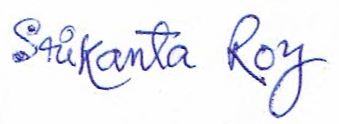 Srikanta Roy